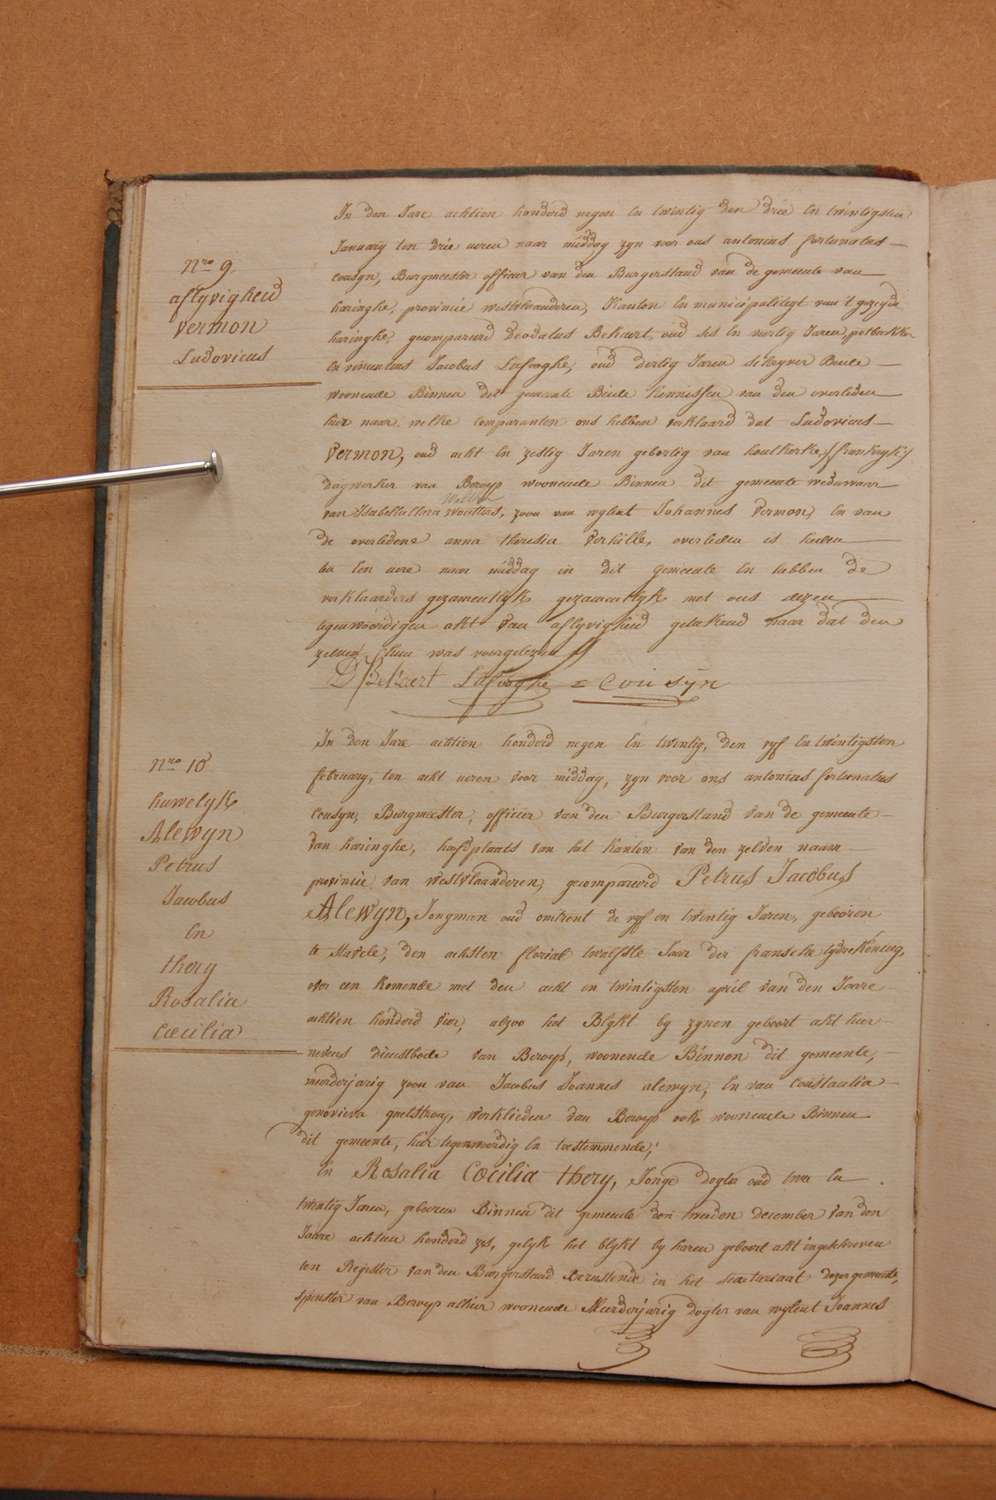 Nro 9
aflyvigheid
Vermon
Ludovicus
In den Jare achtien honderd negen En twintig den drie En twintigsten
January ten drie ueren naar middag zyn voor ons antonius fortunatus
cousyn, Burgmeester officier van den Burgerstand van de gemeente van
haringhe, provincie westvlaanderen, Kanton En municipaliteyt van 't gezeyde
haringhe, gecompareerd deodatus Bekaert, oud ses En veertig Jaren,
En Jacobus Lafooghe, oud dertig Jaren Beide
woonende Binnen dit gemeente Beide kennissen van den overleden
hier naar, welke comparanten ons hebben verklaard dat Ludovicus
Vermon, oud acht En zestig Jaren geboortig van houtkerke, (frankryk)
dagwerker van Beroep woonende Binnen dit gemeente weduwaar
van Isabella Clara wouters, zoon van wylent Johannes Vermon, En van
de overledene anna theresia Verhille, overleden is heden
ten Een uere naar middag in dit gemeente En hebben de
verklaarders gezamentlyk gezamentlyk met ons dezen
tegenwoordigen akt van aflyvigheid geteekend naar dat den
zelven hun was voorgelezen
D Bekaert Lafooghe = Cousyn
Nro 10
huwelyk
Alewyn
Petrus
Jacobus
En
thery
Rosalia
Cœcilia
In den Jare achtien honderd negen En twintig, den vyf En twintigsten
february, ten acht ueren voor middag, zyn voor ons antonius fortunatus
Cousyn, Burgmeester, officier van den Burgerstand van de gemeente
van haringhe, hoofdplaats van het kanton van den zelven naam
provincie van westvlaanderen, gecompareerd Petrus Jacobus
Alewyn, Jongman oud omtrent de vyf en twintig Jaren, gebooren
te Stavele, den achtsten floréal twelfste Jaar der fransche tydrekening,
over een komende met den acht en twintigsten april van den Jaare
achtien honderd vier, alzoo het Blykt by zynen geboort akt hier
nevens dienstbode van Beroep, woonende Binnen dit gemeente,
meerderjarig zoon van Jacobus Joannes alewyn, En van Constantia
genovieva, werklieden van Beroep ook woonende Binnen
dit gemeente, hier tegenwoordig En toestemmende;
En Rosalia Cœcilia thery, Jonge dogter oud twee En
twintig Jaren, geboren Binnen dit gemeente den tweeden december van den
Jaare achtien honderd zes, gelyk het blykt by haren geboort akt ingeschreven
ten Register van den Burgerstand berustende in het secretariaat dezer gemeente,
spinster van Beroep alhier woonende Meerderjarig dogter van wylent Joannes